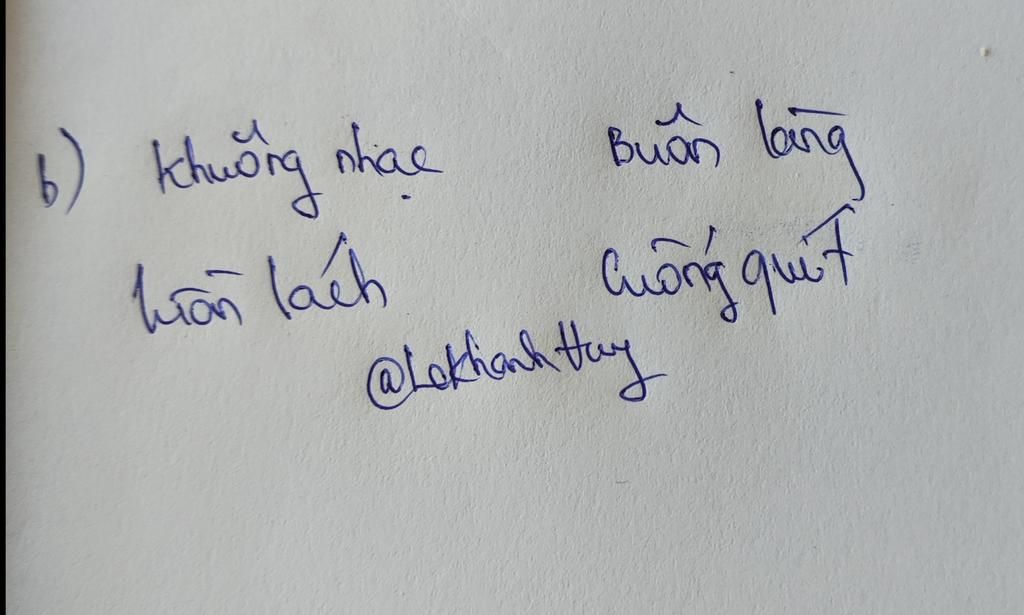 b) khuông nhạc Buôn làng
luồn lách cuống quít
@LeKhanhHuy